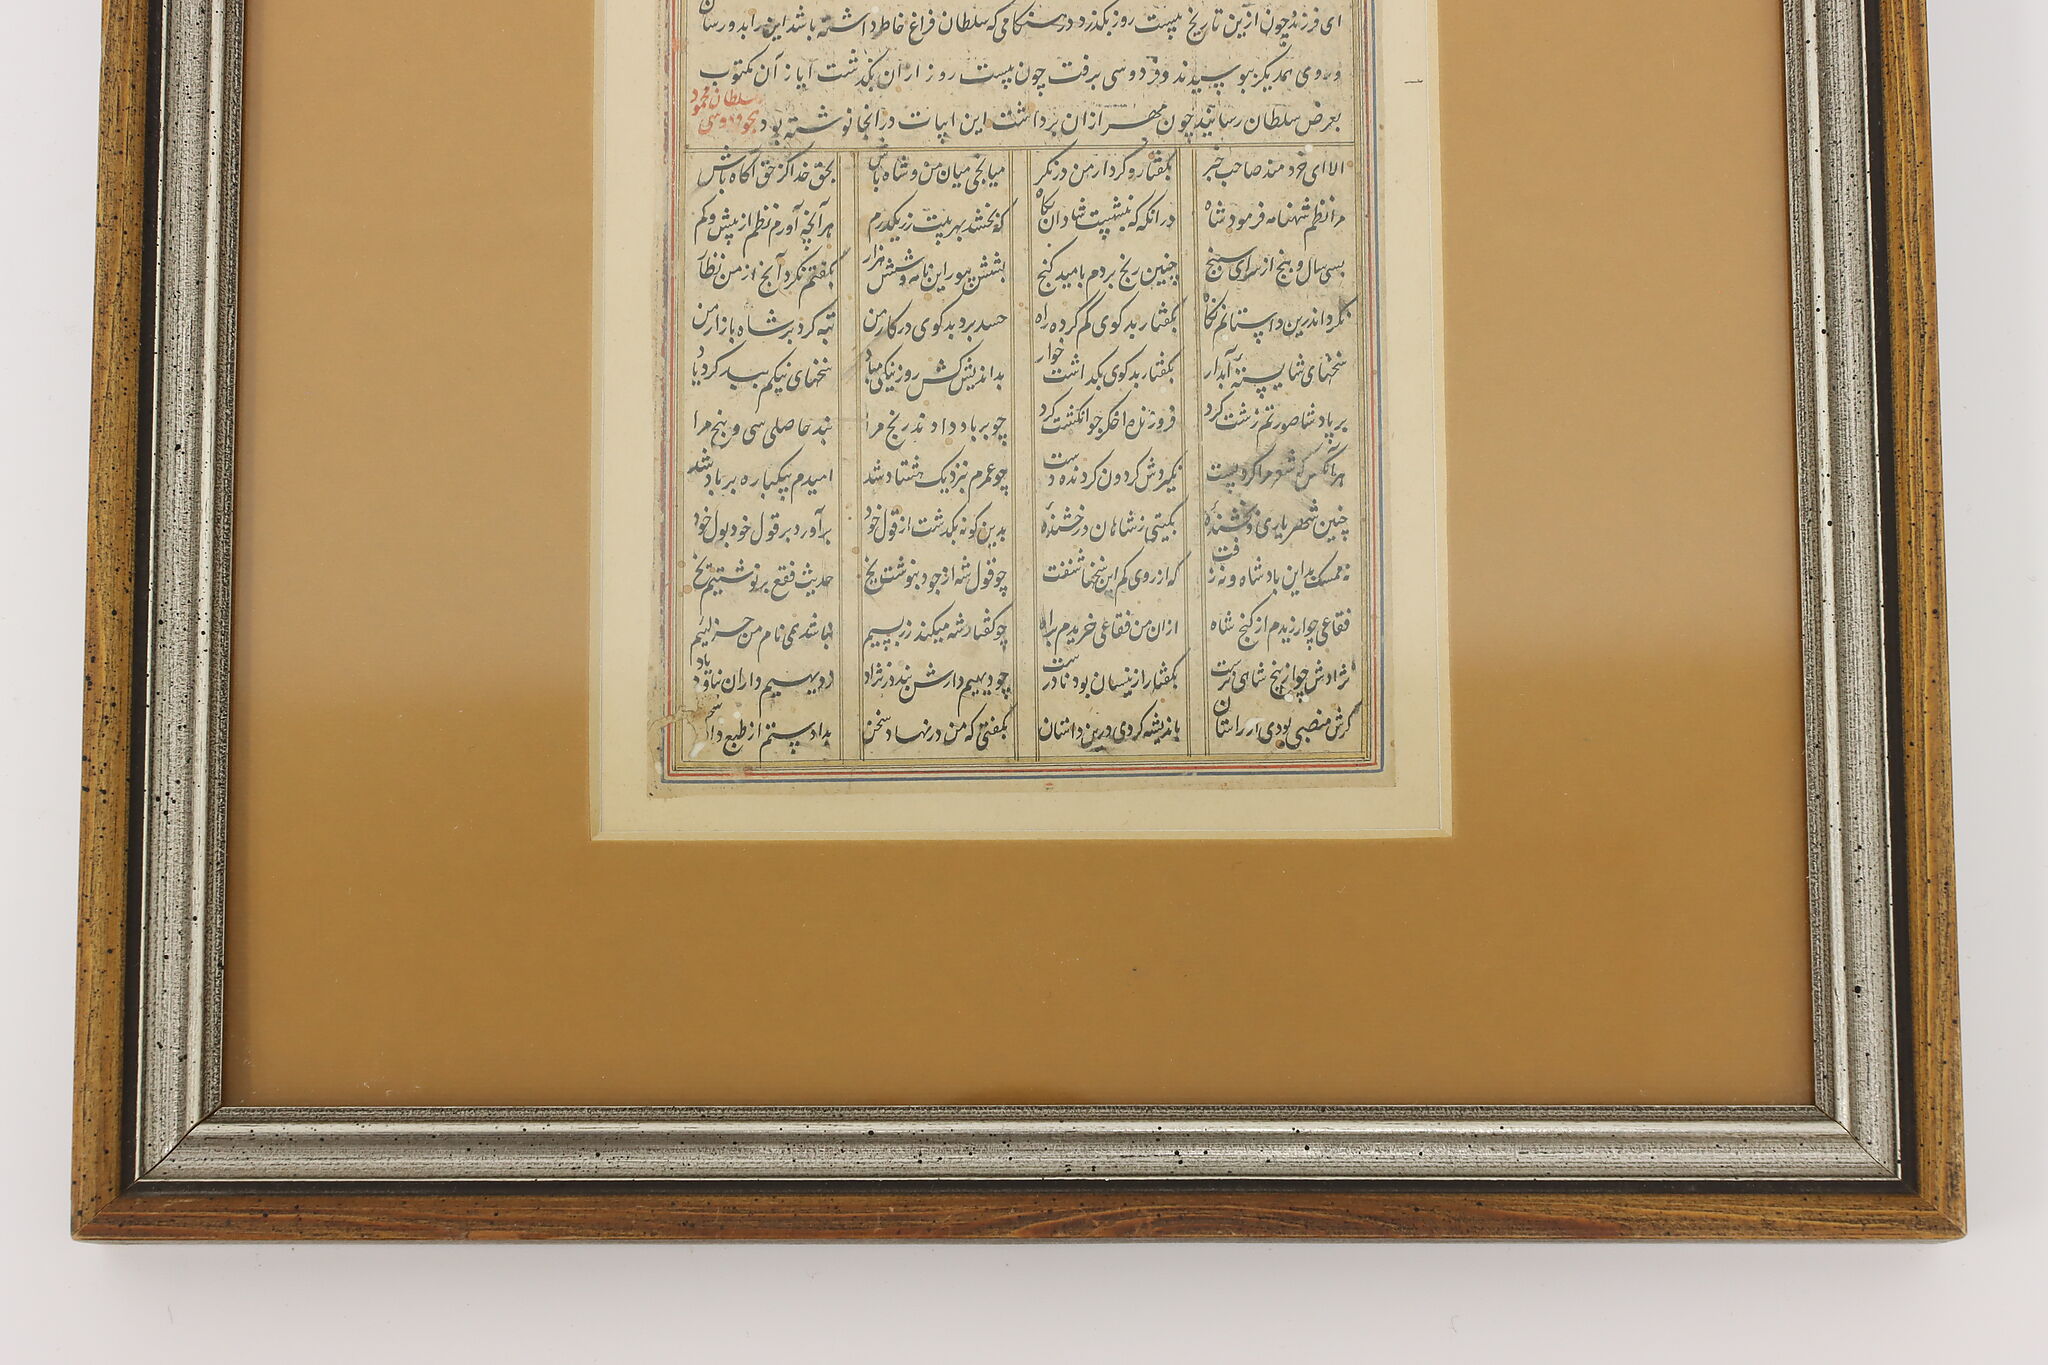 ای فرزند چون ازین تاریخ بیست روز بکذرد در هنکامی که سلطان فراغ خاطر داشته باشد این را بدو رسان
و روی یکدیگر ببوسیدند و فردوسی برفت چون بیست روز از ان بکذشت ایاز آن مکتوب
بعرض سلطان رسانید چون مهر از ان برداشت این ابیات در انجا نوشته بود
سلطان محمود
الا ای خردمند صاحب خبر بکفتار و کردار من در نکر میانجی میان من و شاه باش بحق خدا کز حق آکاه باش
مرا نظم شهنامه فرمود شاه در انکه که بنشست شادان بکاه که بخشد بهر بیت زر یکدرم هر آنچه آورم نظم از بیش و کم
بسی سال و پنج از سرای سپنج چنین رنج بردم بامید کنج بشش بیور این نامه و شش هزار بکفتم نکرد آنچ از من
نکرد اندرین داستانم نکاه بکفتار بد کوی کم کرده راه حسد برد بد کوی در کار من تبه کرد بر شاه بازار من
سخنهای شایسته آبدار بکفتار بد کوی بکذاشت خوار بداندیش کش روز نیکی مباد سخنهای نیکم ببد کرد یاد
بر پادشا صورتم زشت کرد فروزنده اخکر چو انکشت کرد چو بر باد دادند رنج مرا نبد حاصلی سی و پنج مرا
هر آنکس که شعر مرا کرد پست نکیردش کردون کردنده دست چو عمرم بنزدیک هشتاد شد امیدم بیکباره بر باد شد
چنین شهریاری و بخشندهٔ بکیتی ز شاهان درخشندهٔ بدین کونه بکذشت از قول خود برآورد بر قول خود بول خود
نه ممسک بد این پادشاه و نه زفت که از روی کم این سخنها شنفت چو قول شه از جود بنوشت یخ حدیث فقع بر نوشتیم یخ
فقاعی چو ارزیدم از کنج شاه از ان من فقاعی خریدم براه چو کفتار شه میکند زر بسیم نباشد همی نام من جز لئیم
نژادش چو از بیخ شاهی نرست بکفتار ازینسان بود نادرست چو دیهیم دارش نبد در نژاد ز دیهیم داران نیاورد یاد
کرش منصبی بودی از راستان باندیشه کردی درین داستان بکفتی که من در نهاد سخن بدادستم از طبع داد سخن